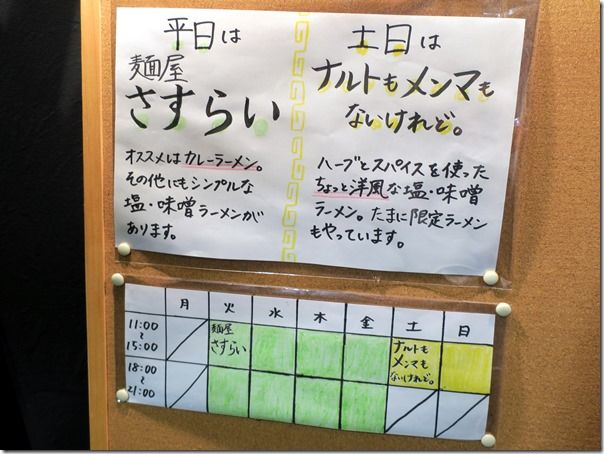 平日は
麵屋
さすらい
オススメはカレーラーメン。
その他にもシンプルな
塩・味噌ラーメンが
あります。
土日は
ナルトもメンマも
ないけれど。
ハーブとスパイスを使った
ちょっと洋風な塩・味噌
ラーメン。たまに限定ラーメン
もやっています。
月 火 水 木 金 土 日
11:00
~
15:00
麵屋
さすらい
ナルトも
メンマも
ないけれど。
18:00
~
21:00